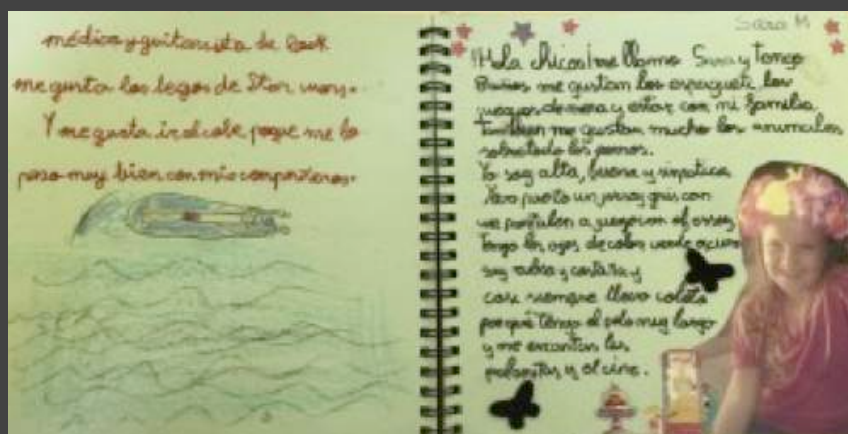 médico y guitarrista de Rock
me gusta los legos de Star wars.
Y me gusta ir al cole porque me lo
paso muy bien con mis compañeros.
Sara M
¡¡Hola chicos! me llamo Sara y Tengo
me gustan los espagueti, los
juegos de mesa y estar con mi familia
Tambien me gustan mucho los animales
sobretodo los perros.
Yo soy alta, buena y simpatica
Llevo puesto un jersey gris con
un pantalon a juego con el
Tengo los ojos de color verde oscuro
soy rubia y
casi siempre llevo coleta
porqué tengo el pelo muy largo
y me encantan las
palomitas y el cine.